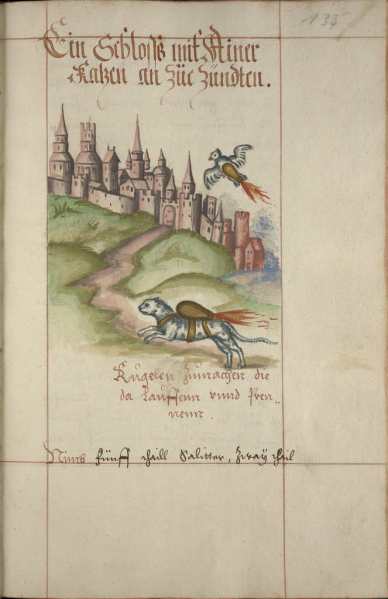 135
Ein Schloss mit Einer
Katzen an Züe Zündten.
Kugelen Zumachen die
da Lauffenn vnnd Pren-
nenn.
Nimb fünff thaill Saliter, Zway thail